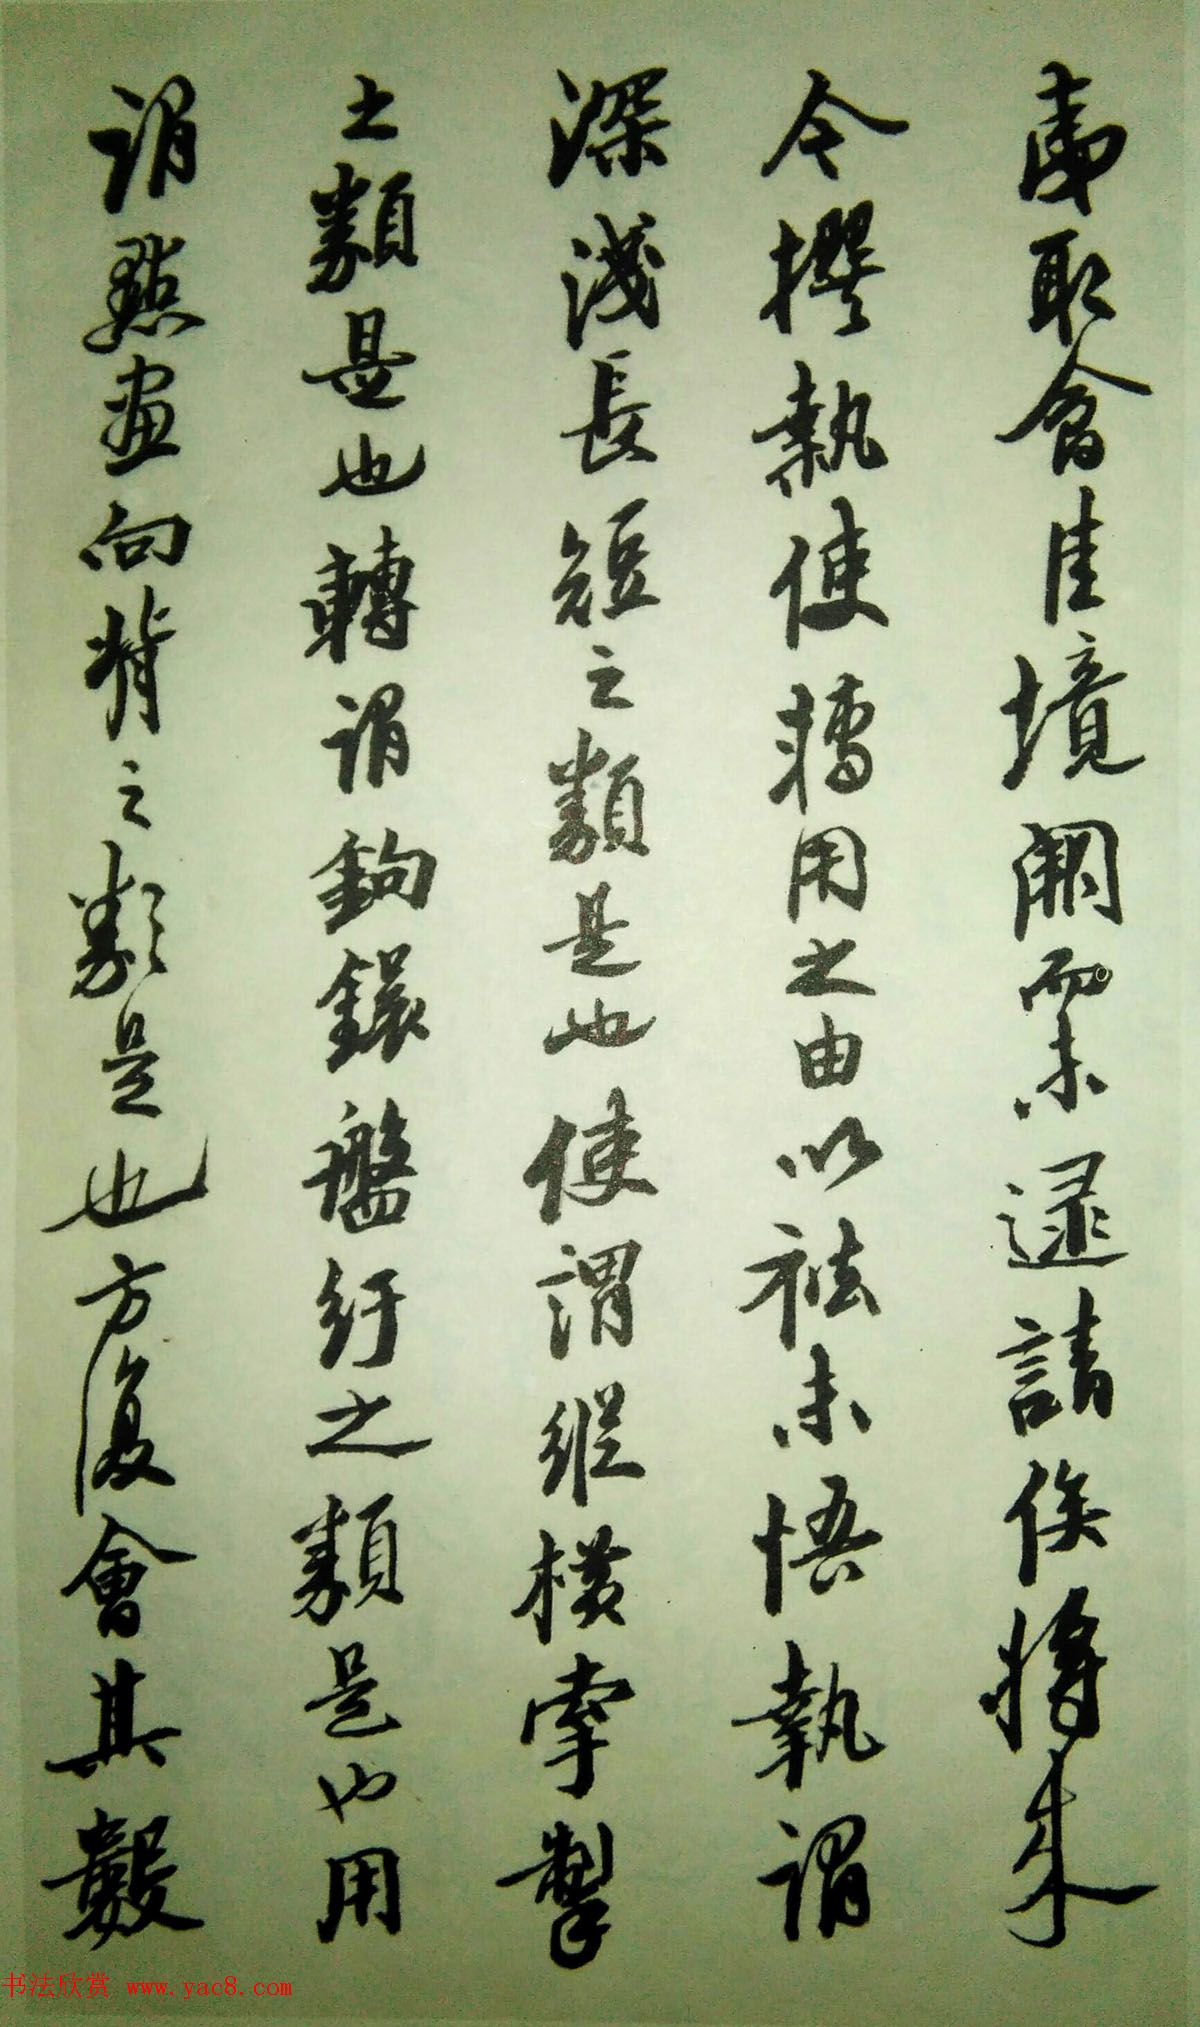 焉取會佳境闕而未逮請俟將来
今撰執使轉用之由以祛未悟執謂
深淺長短之類是也使謂縱橫牽掣
之類是也轉謂鉤鐶盤紆之類是也用
謂點畫向背之類是也方復會其數
书法欣赏 www.yac8.com